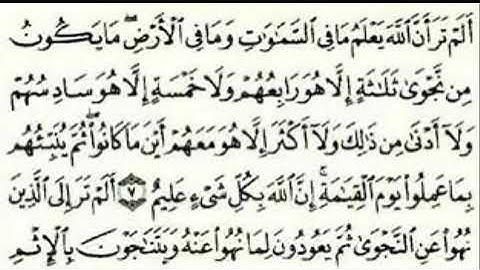 أَلَمْ تَرَ أَنَّ ٱللَّهَ يَعْلَمُ مَا فِى ٱلسَّمَـٰوَٰتِ وَمَا فِى ٱلْأَرْضِ ۖ مَا يَكُونُ
مِن نَّجْوَىٰ ثَلَـٰثَةٍ إِلَّا هُوَ رَابِعُهُمْ وَلَا خَمْسَةٍ إِلَّا هُوَ سَادِسُهُمْ
وَلَآ أَدْنَىٰ مِن ذَٰلِكَ وَلَآ أَكْثَرَ إِلَّا هُوَ مَعَهُمْ أَيْنَ مَا كَانُوا۟ ۖ ثُمَّ يُنَبِّئُهُم
بِمَا عَمِلُوا۟ يَوْمَ ٱلْقِيَـٰمَةِ ۚ إِنَّ ٱللَّهَ بِكُلِّ شَىْءٍ عَلِيمٌ ۝٧ أَلَمْ تَرَ إِلَى ٱلَّذِينَ
نُهُوا۟ عَنِ ٱلنَّجْوَىٰ ثُمَّ يَعُودُونَ لِمَا نُهُوا۟ عَنْهُ وَيَتَنَـٰجَوْنَ بِٱلْإِثْمِ